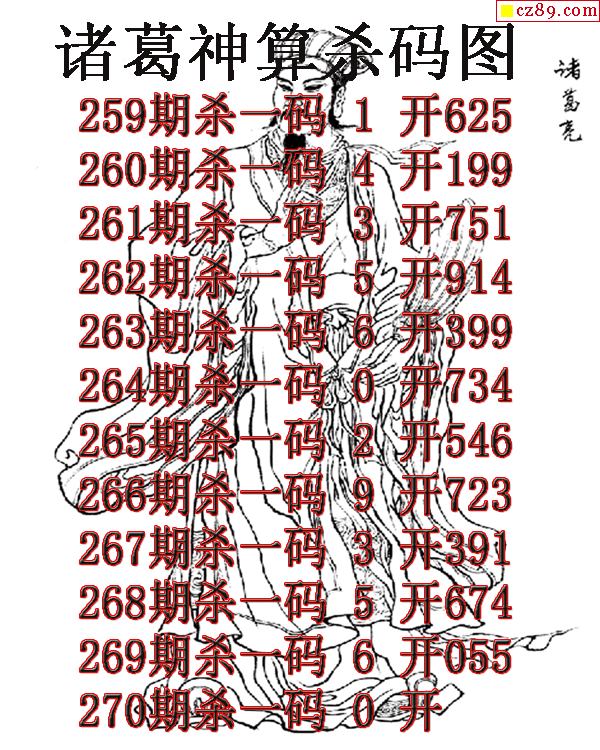 cz89.com
诸葛神算杀码图
诸葛亮
259期杀一码 1 开625
260期杀一码 4 开199
261期杀一码 3 开751
262期杀一码 5 开914
263期杀一码 6 开399
264期杀一码 0 开734
265期杀一码 2 开546
266期杀一码 9 开723
267期杀一码 3 开391
268期杀一码 5 开674
269期杀一码 6 开055
270期杀一码 0 开